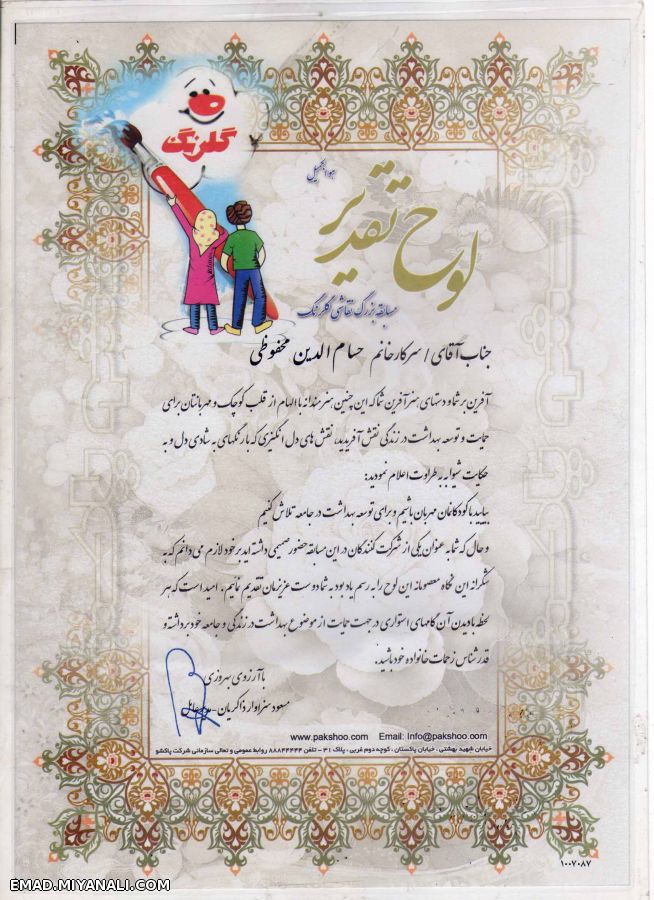 گلرنگ
هوالجمیل
لوح تقدیر
مسابقه بزرگ نقاشی گلرنگ
جناب آقای / سرکار خانم حسام الدین محفوظی
آفرین بر شما و دستهای هنرآفرین شما که این چنین هنرمندانه با الهام از قلب کوچک و مهربانتان برای
حمایت و توسعه بهداشت در زندگی نقش آفریدید، نقش های دل انگیزی که با رنگهای به شادی دل و به
حکایت شیوا به طراوت اعلام نمودید:
بیایید با کودکانمان مهربان باشیم و برای توسعه بهداشت در جامعه تلاش کنیم
و حال که شما به عنوان یکی از شرکت کنندگان در این مسابقه حضور صمیمی داشته اید بر خود لازم می دانم که به
شکرانه این نگاه معصومانه این لوح را به رسم یادبود به شما دوست عزیزمان تقدیم نمائیم. امید است که هر
لحظه با دیدن آن گامهای استواری در جهت حمایت از موضوع بهداشت در زندگی و جامعه خود برداشته و
قدرشناس زحمات خانواده خود باشید.
با آرزوی بهروزی
مسعود سزاوار ذاکریان - مدیرعامل
www.pakshoo.com Email: Info@pakshoo.com
خیابان شهید بهشتی، خیابان پاکستان، کوچه دوم غربی، پلاک ۳۱ - تلفن ۸۸۸۴۴۴۴۴ روابط عمومی و تعالی سازمانی شرکت پاکشو
۱۰۰۷۰۸۷
EMAD.MIYANALI.COM